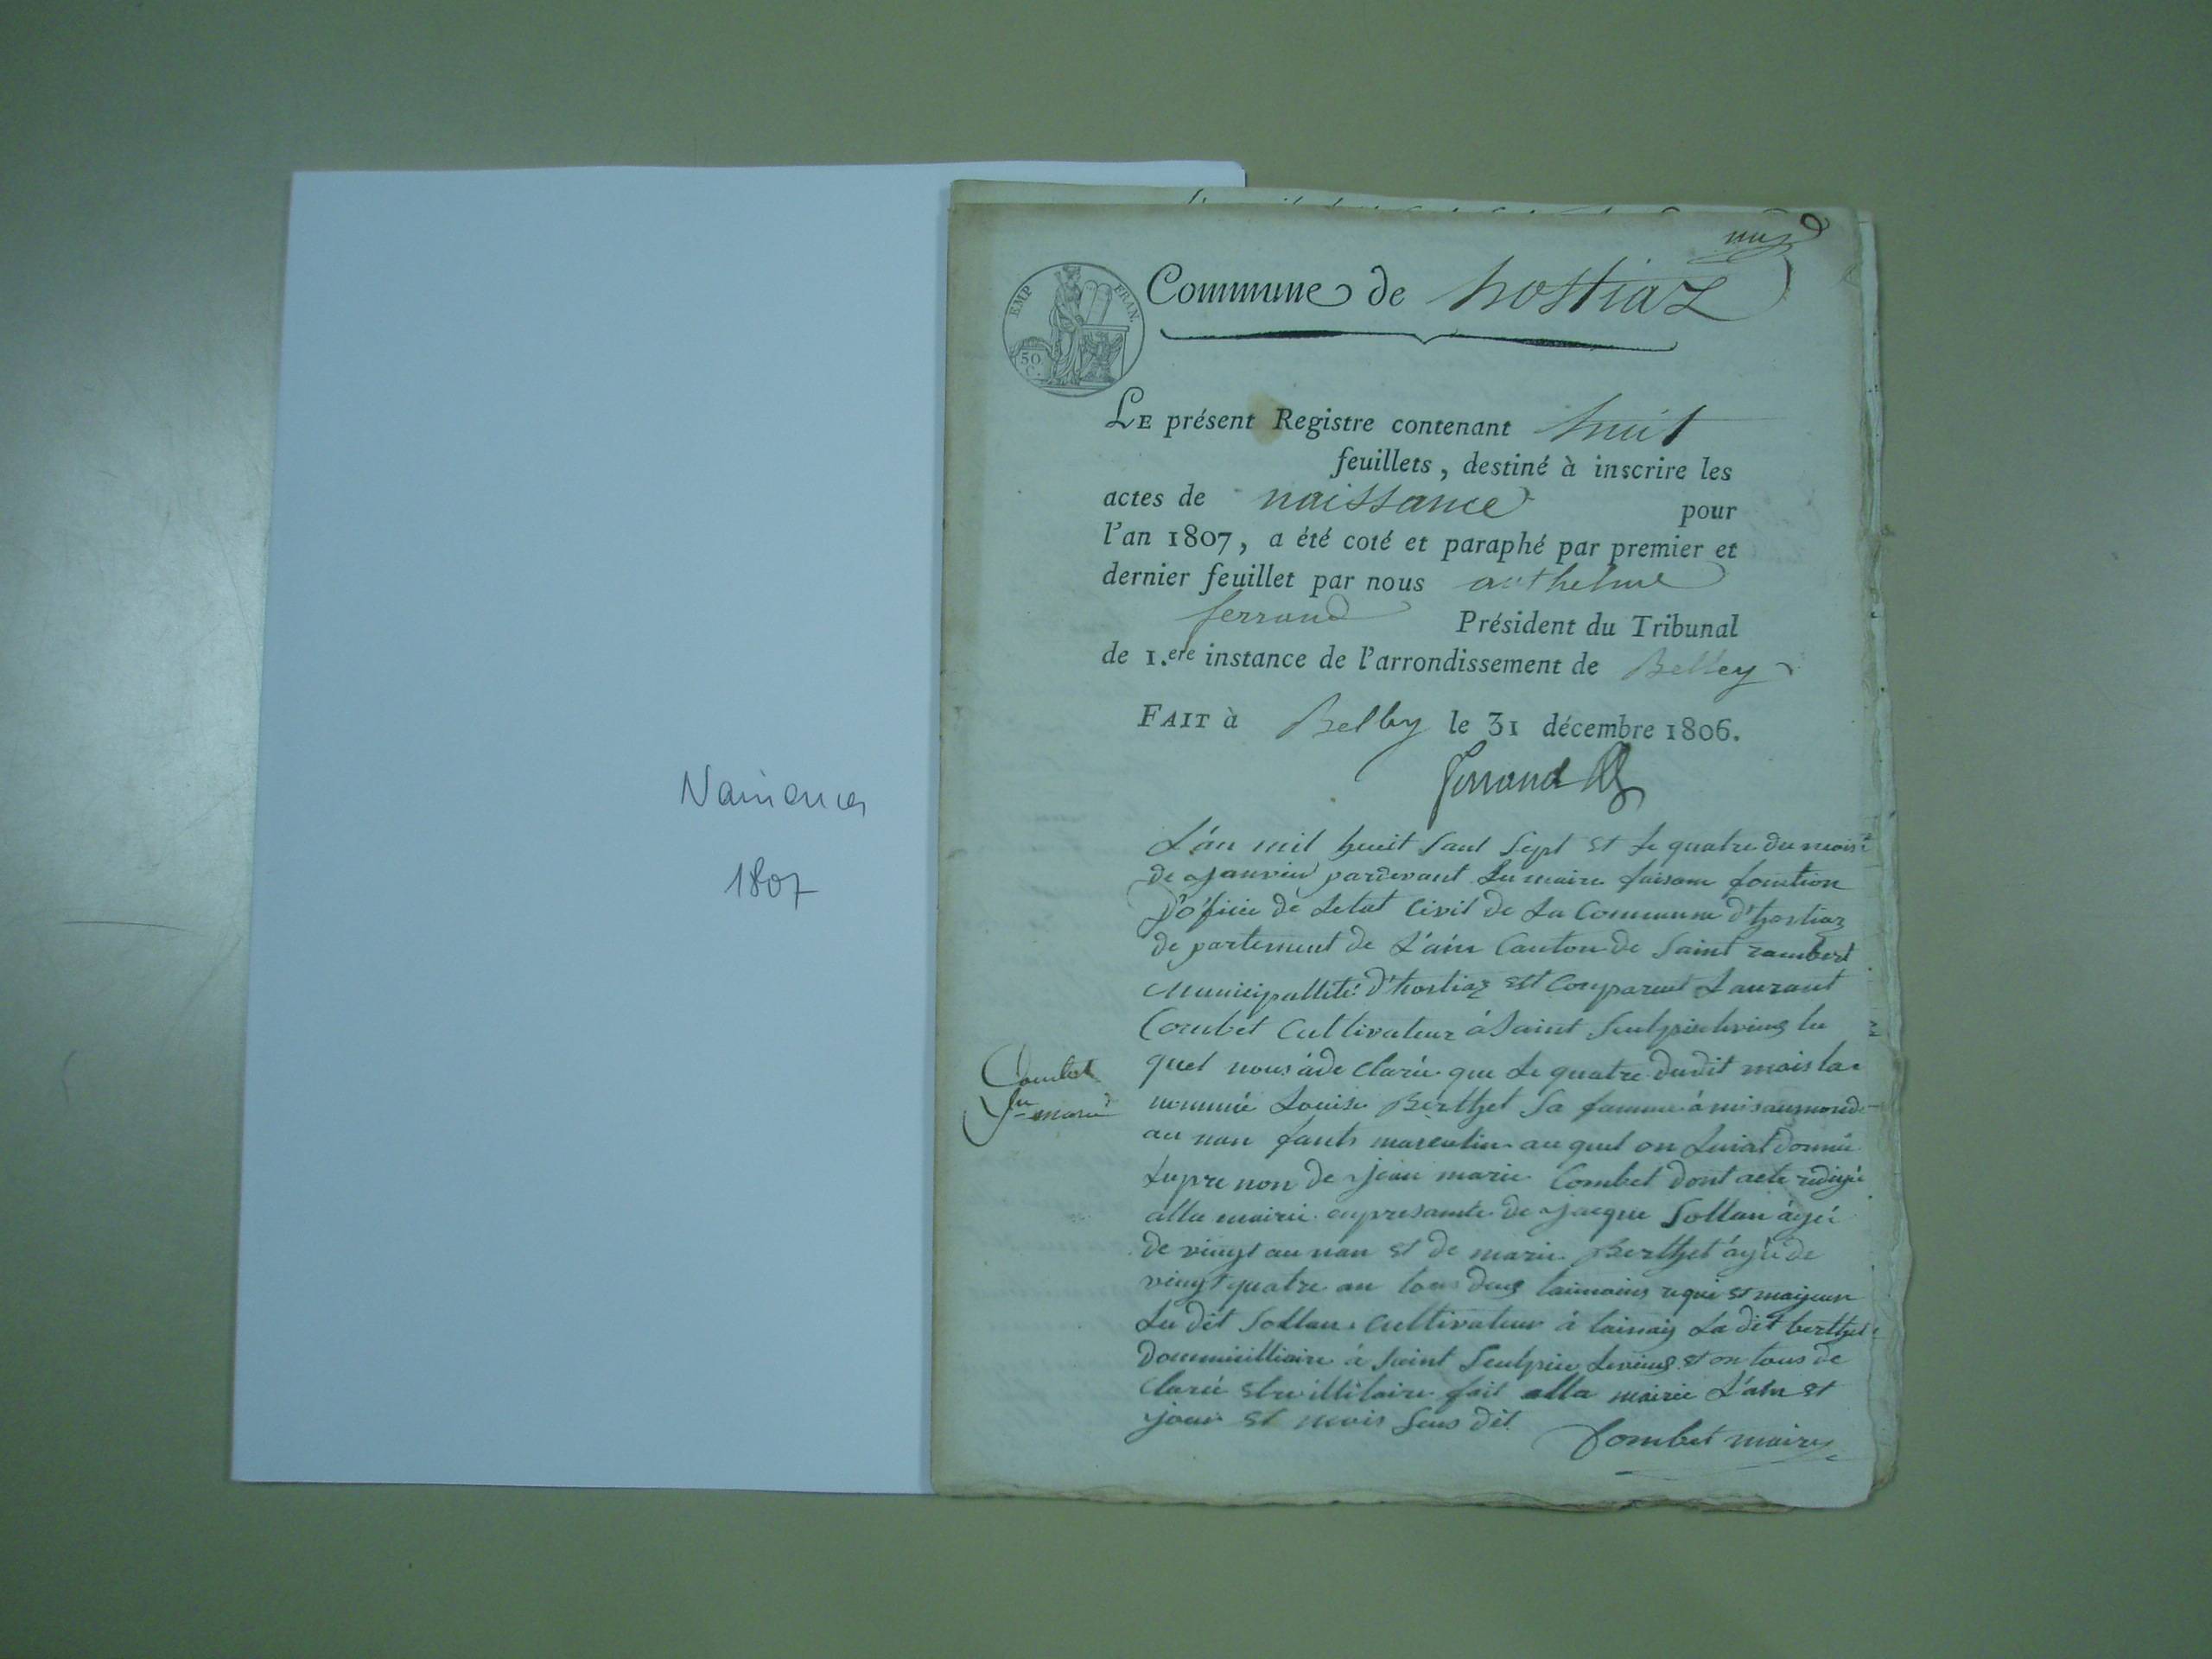 Naissances
1807
une
EMP FRAN.
50
C.
Commune de hostiaz
LE présent Registre contenant huit
feuillets, destiné à inscrire les
actes de naissance pour
l'an 1807, a été coté et paraphé par premier et
dernier feuillet par nous anthelme
ferrand Président du Tribunal
de 1.ere instance de l'arrondissement de Belley
FAIT à Belley le 31 décembre 1806.
ferrand
L'an mil huit sant sept et le quatre du mois
de janvier pardevant le maire faisant fontion
d'oficié de letat Civil de la Commune d'hostiaz
de partement de L'ain Canton de saint rambert
Municipallité d'hostiaz est Comparent Laurant
Combet Cultivateur à saint Seulpice le
quel nous à de Clarée que le quatre dudit mois la
nommée Louise Berthet sa famme à mis aumonde
au nan fants masculin au quel on luiat donnée
le pre non de jean marie Combet dont acte redigé
alla mairie en presante de jacque Sollan àgé
de vingt au nan et de marie Berthet àgé de
vingt quatre an tous deus et majeur
Le dit Sollan Cultivateur à la dit berthet
Dommicilliaire à saint Seulpice et on tous de
Clarée etre illitaire fait alla mairie L'an et
jour et mois sus dit
Combet maire
Combet
jn marie